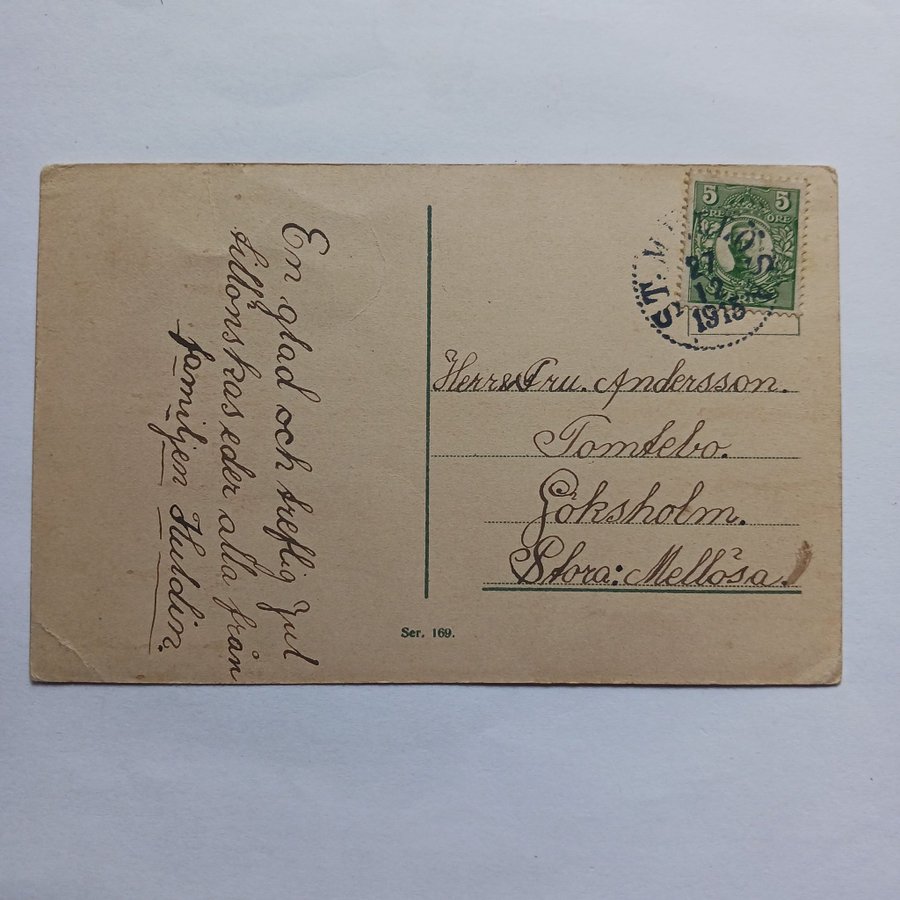 En glad och treflig Jul
tillönskas eder alla från
familjen Huldin.
5 5
ÖRE ÖRE
27
12
1915
Herr o Fru. Andersson.
Tomtebo.
Göksholm.
Stora: Mellösa.
Ser. 169.